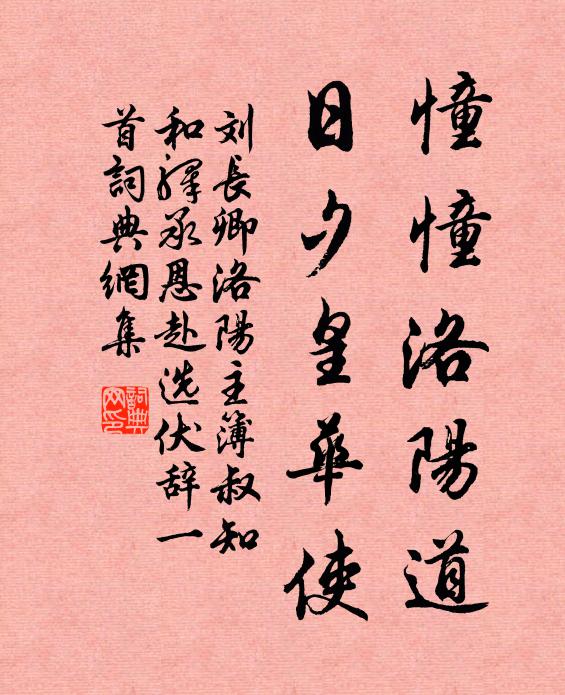 憧憧洛陽道
日夕皇華使
刘長卿洛陽主簿叔知
和驛承恩赴选伏辞一
首詞典網集
詞典
网印